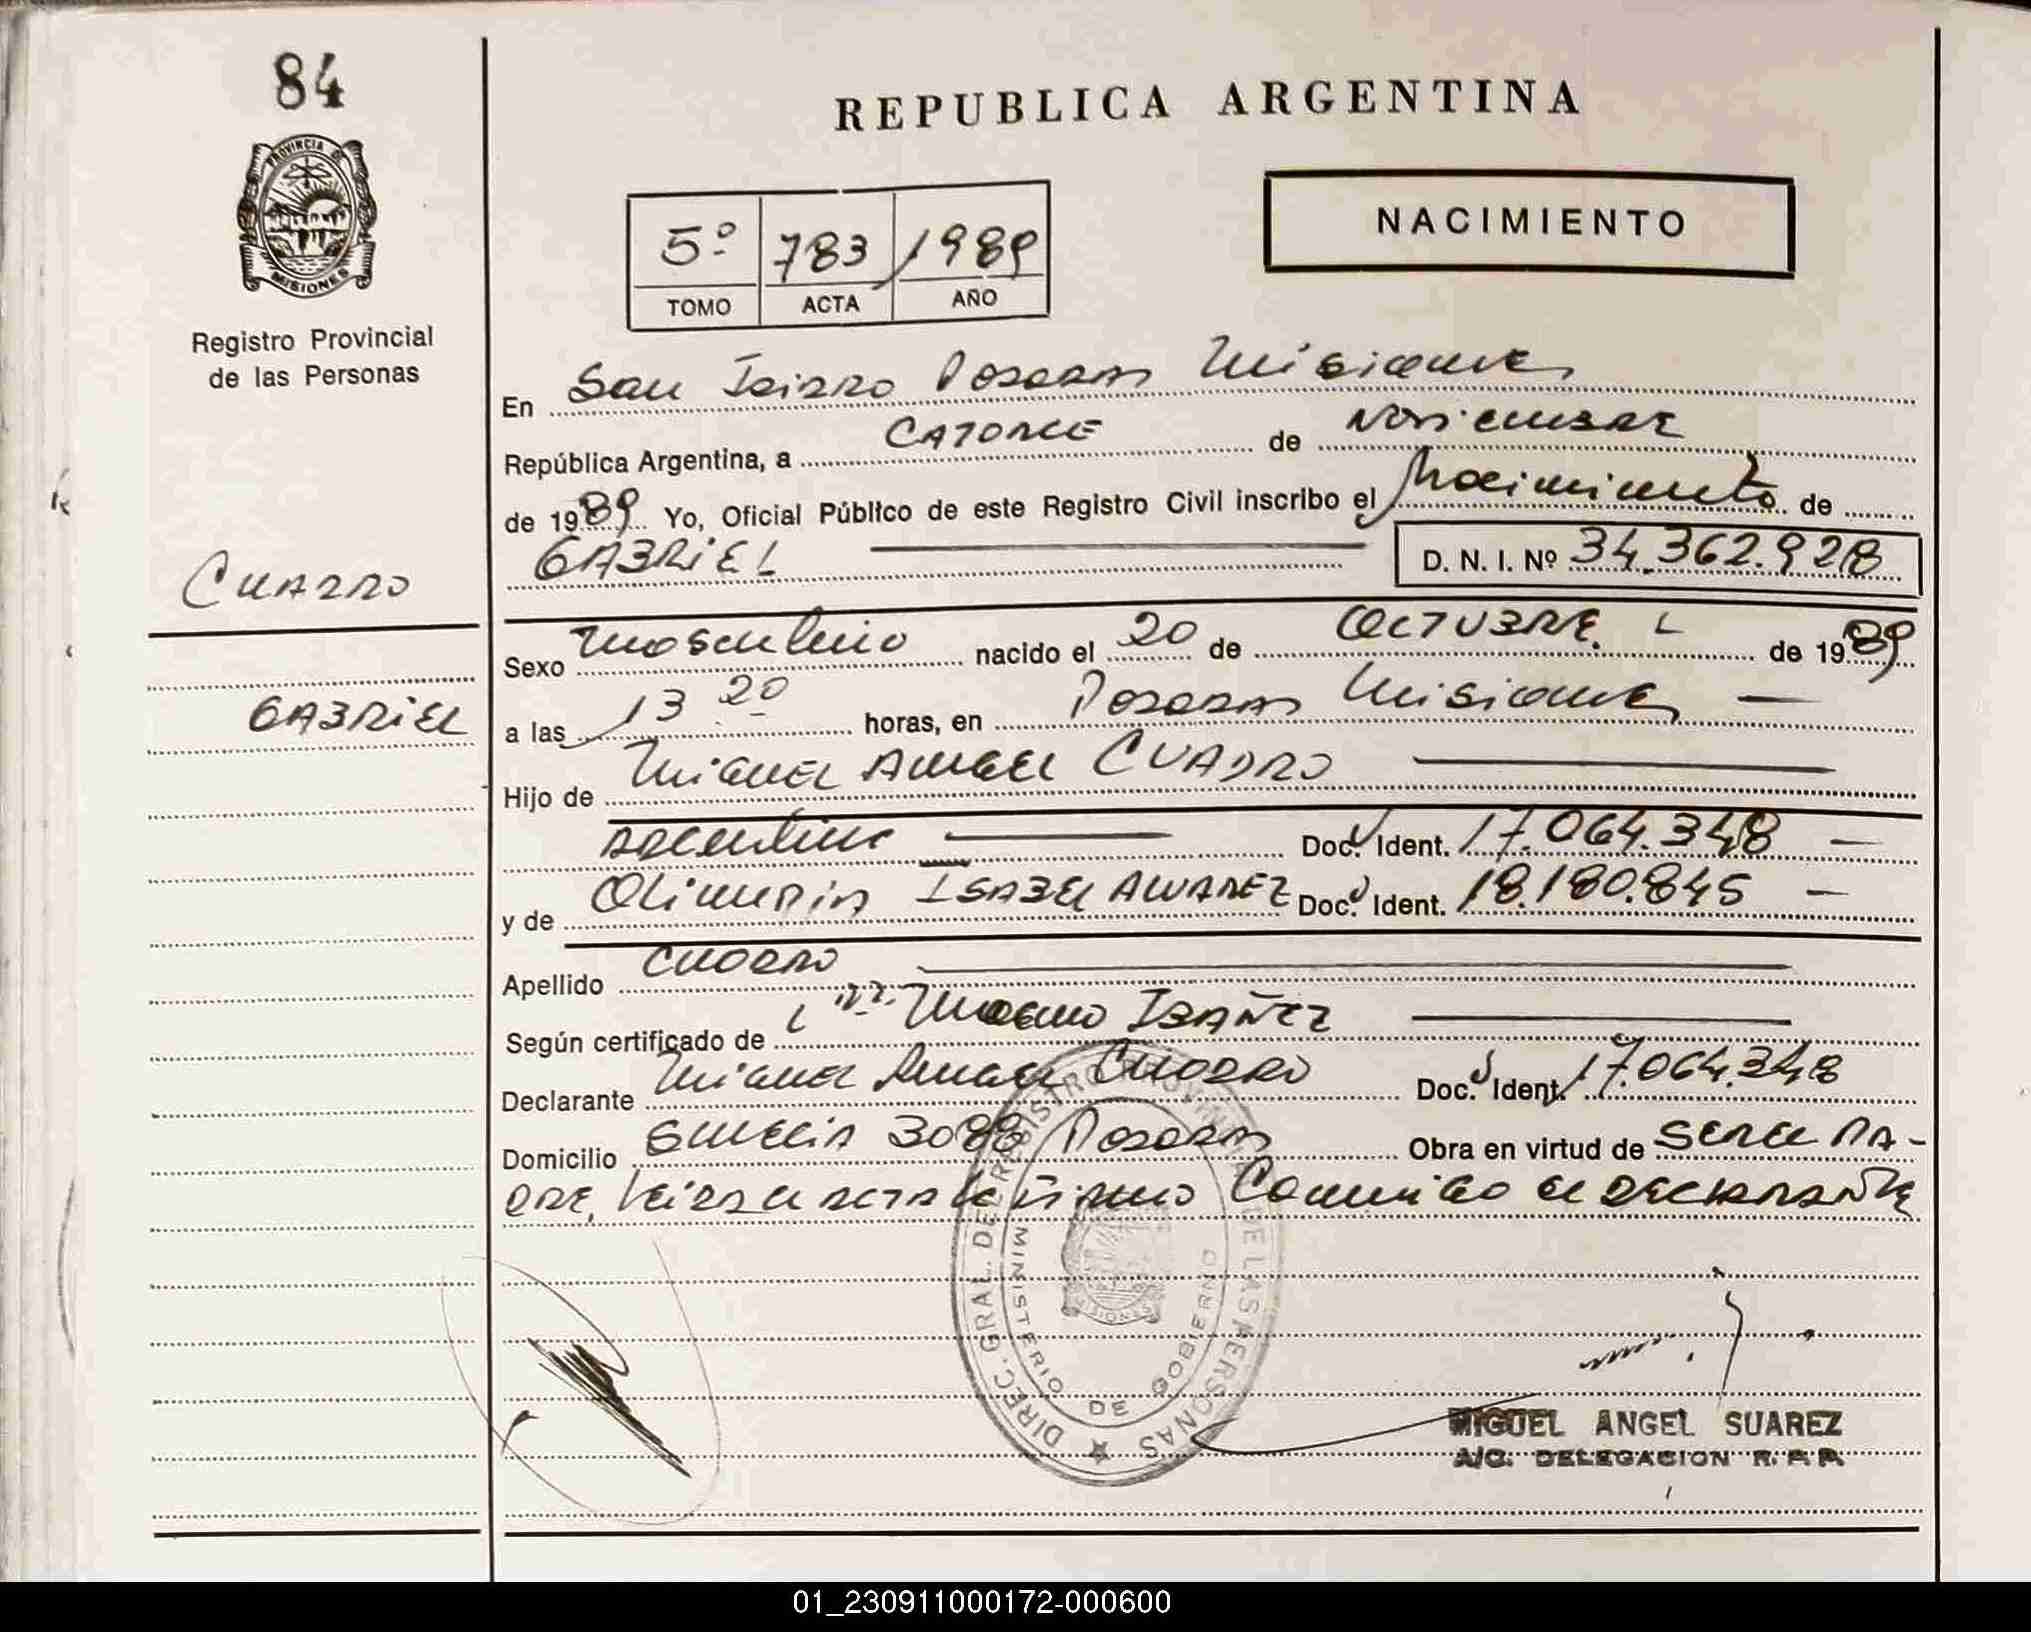 84
PROVINCIA DE
MISIONES
Registro Provincial
de las Personas
CUADRO
GABRIEL
REPUBLICA ARGENTINA
NACIMIENTO
5º 783 1989
TOMO ACTA AÑO
En San Isidro Posadas Misiones
República Argentina, a CATORCE de Noviembre
de 1989 Yo, Oficial Público de este Registro Civil inscribo el Nacimiento de
GABRIEL D. N. I. Nº 34.362.928
Sexo masculino nacido el 20 de OCTUBRE de 1989
a las 13 20 horas, en Posadas Misiones
Hijo de Miguel Angel CUADRO
argentino Doc. Ident. 17.064.348
y de Olimpia ISABEL ALVAREZ Doc. Ident. 18.180.845
Apellido CUADRO
Según certificado de IBAÑEZ
Declarante Miguel Angel Cuadro Doc. Ident. 17.064.348
Domicilio 3088 Posadas Obra en virtud de ser el PA-
DRE, leida el acta la firmo Conmigo el DECLARANTE
DIREC. GRAL. DEL REGISTRO PROVINCIAL DE LAS PERSONAS
MINISTERIO DE GOBIERNO
MISIONES
MIGUEL ANGEL SUAREZ
A/C. DELEGACION R. P. P.
01_230911000172-000600